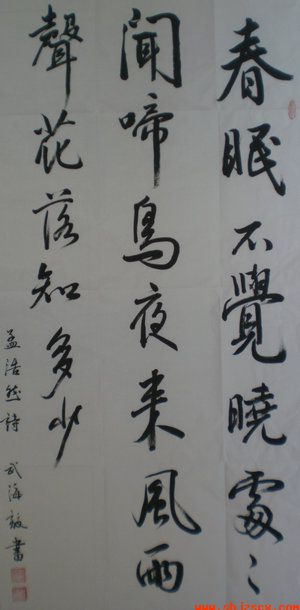 春眠不覺曉處〻
聞啼鳥夜来風雨
聲花落知多少
孟浩然詩 武海
書